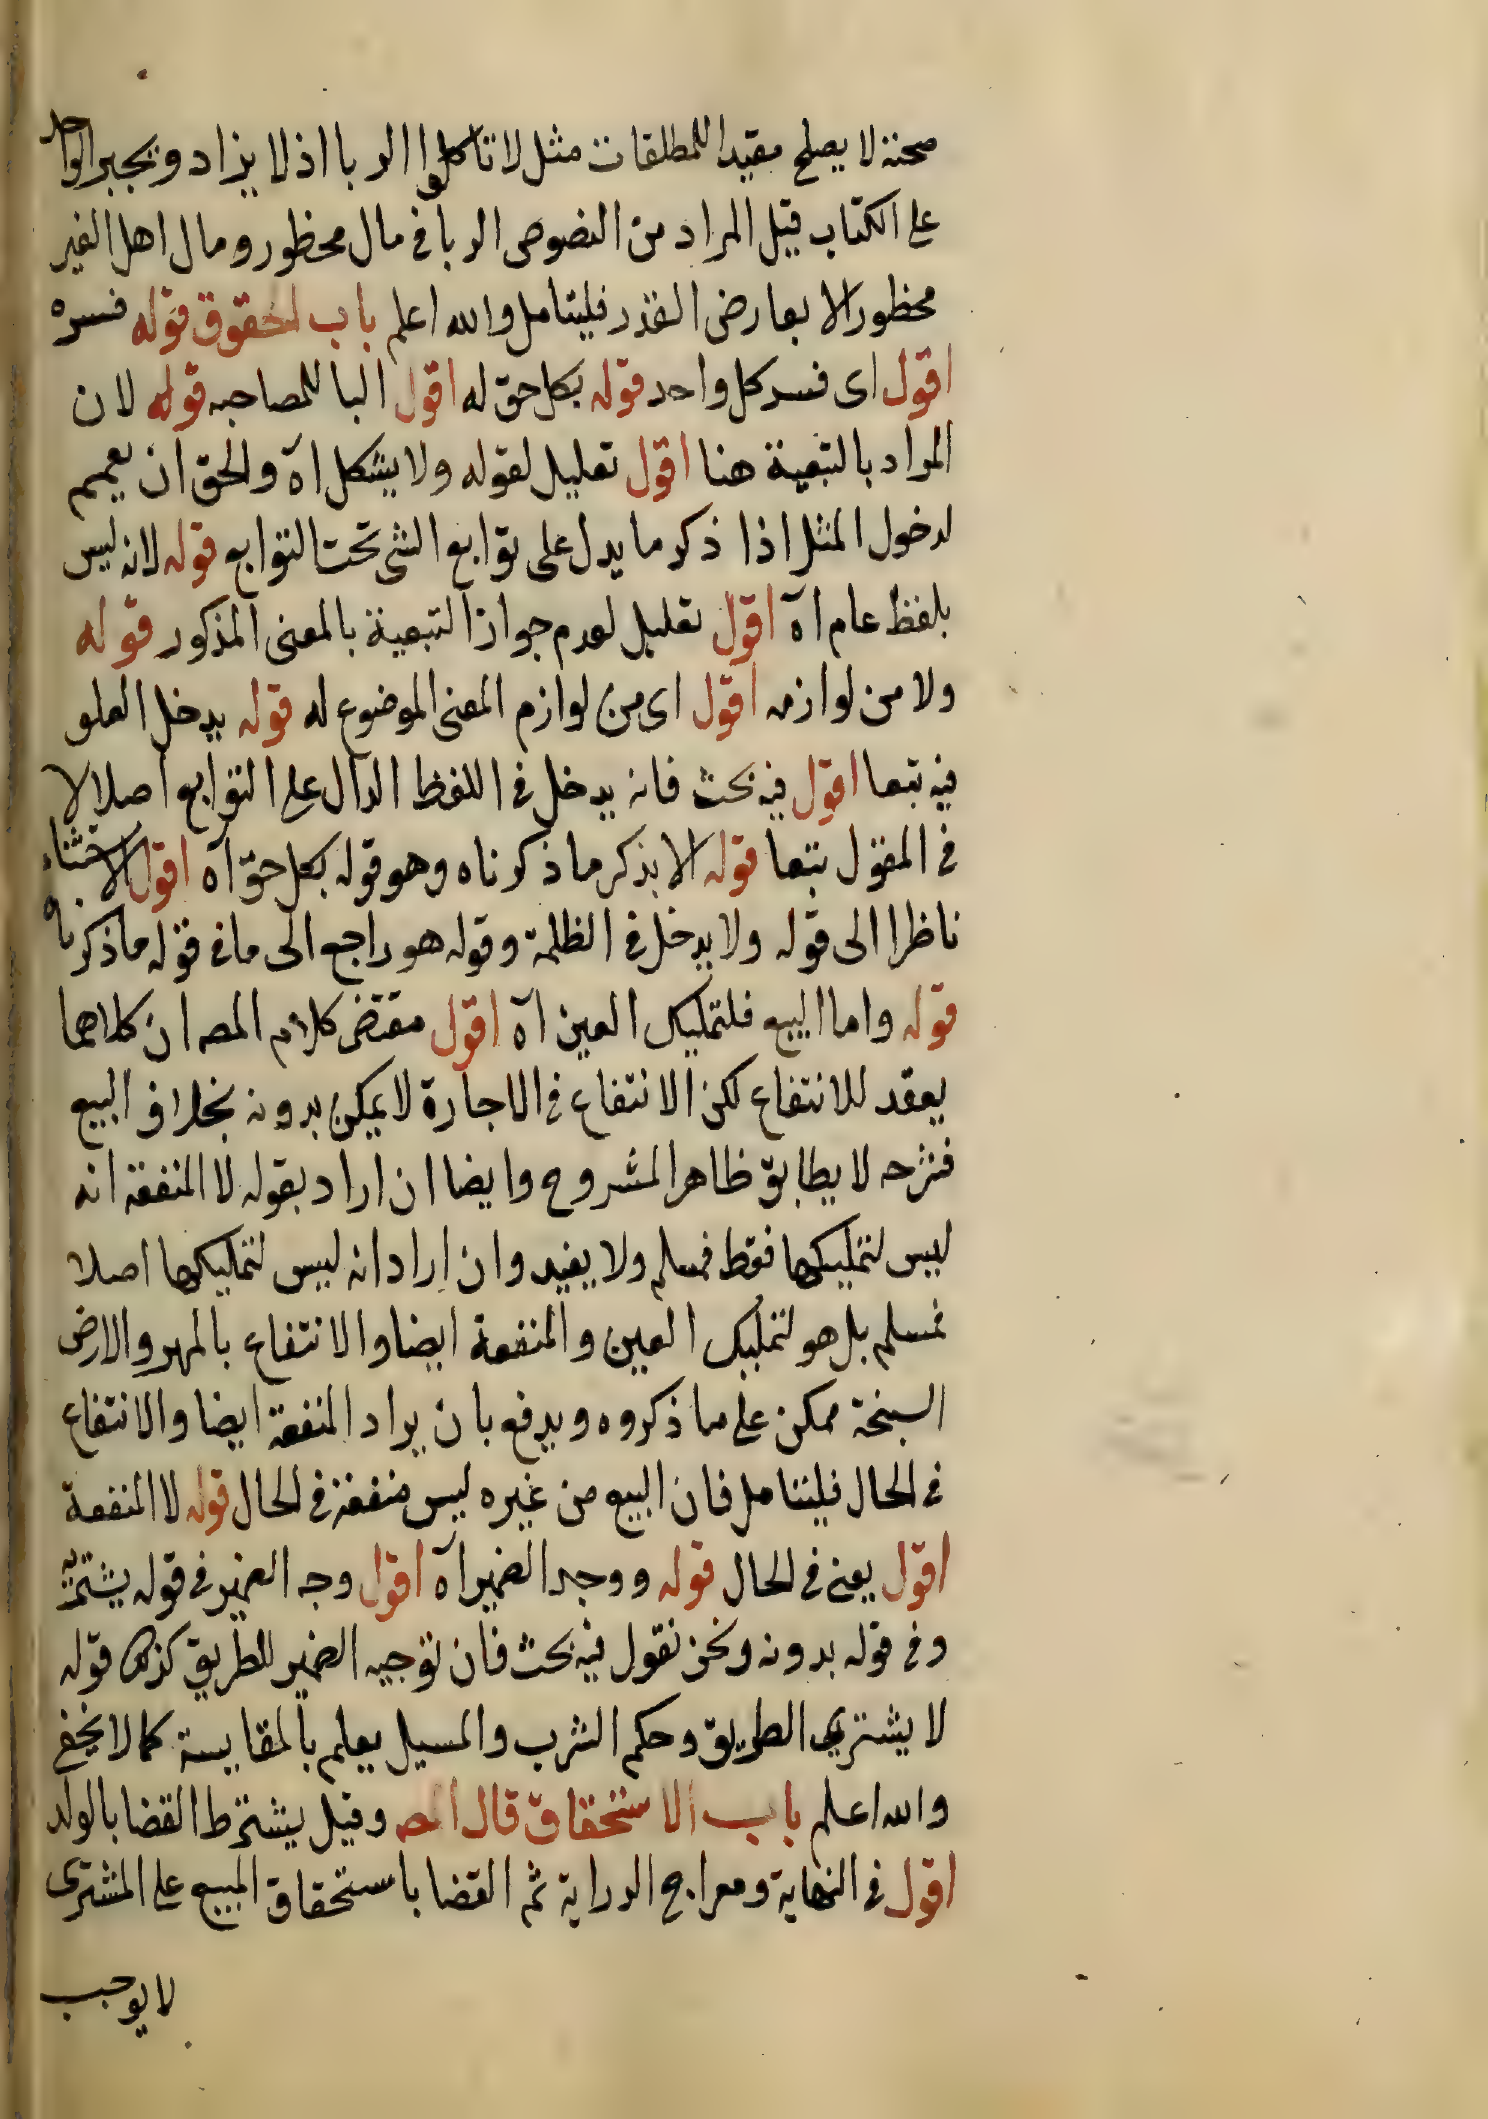 صحته لا يصلح مقيدا للمطلقات مثل لا تاكلوا الربا اذ لا يزاد و بخبر الواحد
على الكتاب قيل المراد من النصوص الربا في مال محظور ومال اهل الغير
محظور الا بعارض الغدر فليتامل والله اعلم باب الحقوق قوله فسره
اقول اى فسر كل واحد قوله بكل حق له اقول البا للمصاحبه قوله لان
المراد بالتبعية هنا اقول تعليل لقوله ولا يشكل اه والحق ان يعمم
لدخول المثل اذا ذكر ما يدل على توابع الشى تحت التوابع قوله لانه ليس
بلفظ عام اه اقول تعليل لعدم جواز التبعية بالمعنى المذكور قوله
ولا من لوازمه اقول اى من لوازم المعنى الموضوع له قوله يدخل العلو
فيه تبعا اقول فيه بحث فانه يدخل في اللفظ الدال على التوابع اصلا لا
في المقول تبعا قوله الا بذكر ما ذكرناه وهو قوله بكل حق اه اقول الاستثناء
ناظرا الى قوله ولا يدخل في الظلمة وقوله هو راجع الى ما في قوله ما ذكرناه
قوله واما البيع فلتمليك العين اه اقول مقتضى كلام المص ان كلاهما
يعقد للانتفاع لكن الانتفاع في الاجارة لا يمكن بدونه بخلاف البيع
فشرحه لا يطابق ظاهر المشروح وايضا ان اراد بقوله لا المنفعة انه
ليس لتمليكها فقط فمسلم ولا يفيد وان اراد انه ليس لتمليكها اصلا
فمسلم بل هو لتمليك العين والمنفعة ايضا والانتفاع بالمهر والارض
السبخة ممكن على ما ذكروه ويدفع بان يراد المنفعة ايضا والانتفاع
في الحال فليتامل فان البيع من غيره ليس منفعة في الحال قوله لا المنفعة
اقول يعنى في الحال قوله ووجد الضمير اه اقول وجه الضمير في قوله يشتريه
وفي قوله بدونه ونحن نقول فيه بحث فان توجيه الضمير للطريق كذلك قوله
لا يشترى الطريق وحكم الشرب والمسيل يعلم بالمقايسة كما لا يخفى
والله اعلم باب الاستحقاق قال المص وقيل يشترط القضا بالولد
اقول في النهاية ومعراج الدراية ثم القضا باستحقاق المبيع على المشترى
لا يوجب